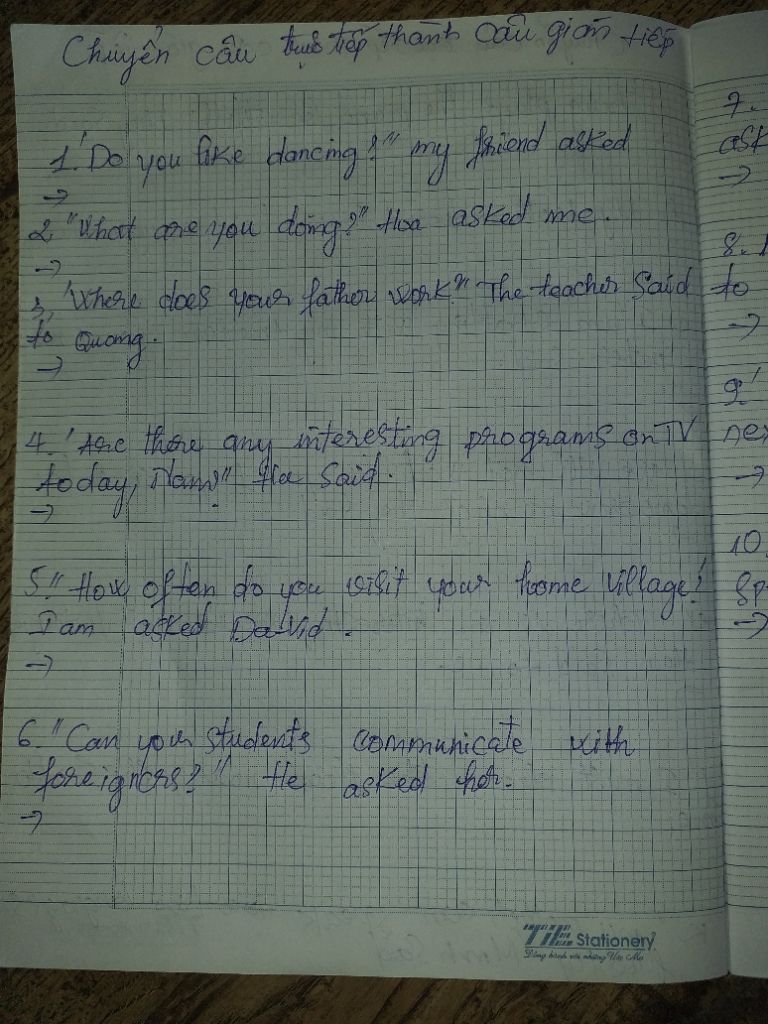 Chuyển câu trực tiếp thành câu gián tiếp
1. "Do you like dancing?" my friend asked
→
2. "What are you doing?" Hoa asked me.
→
3, "Where does your father work?" The teacher Said
to Quang.
→
4. "Are there any interesting programs on TV
today, Nam?" Ha Said.
→
5. "How often do you visit your home village?
Tam asked David.
→
6. "Can your students communicate with
foreigners?" He asked her.
→
7.
ask
→
8.
to
→
9.
nex
→
10.
→
TiE Stationery
Đồng hành với những Ước Mơ